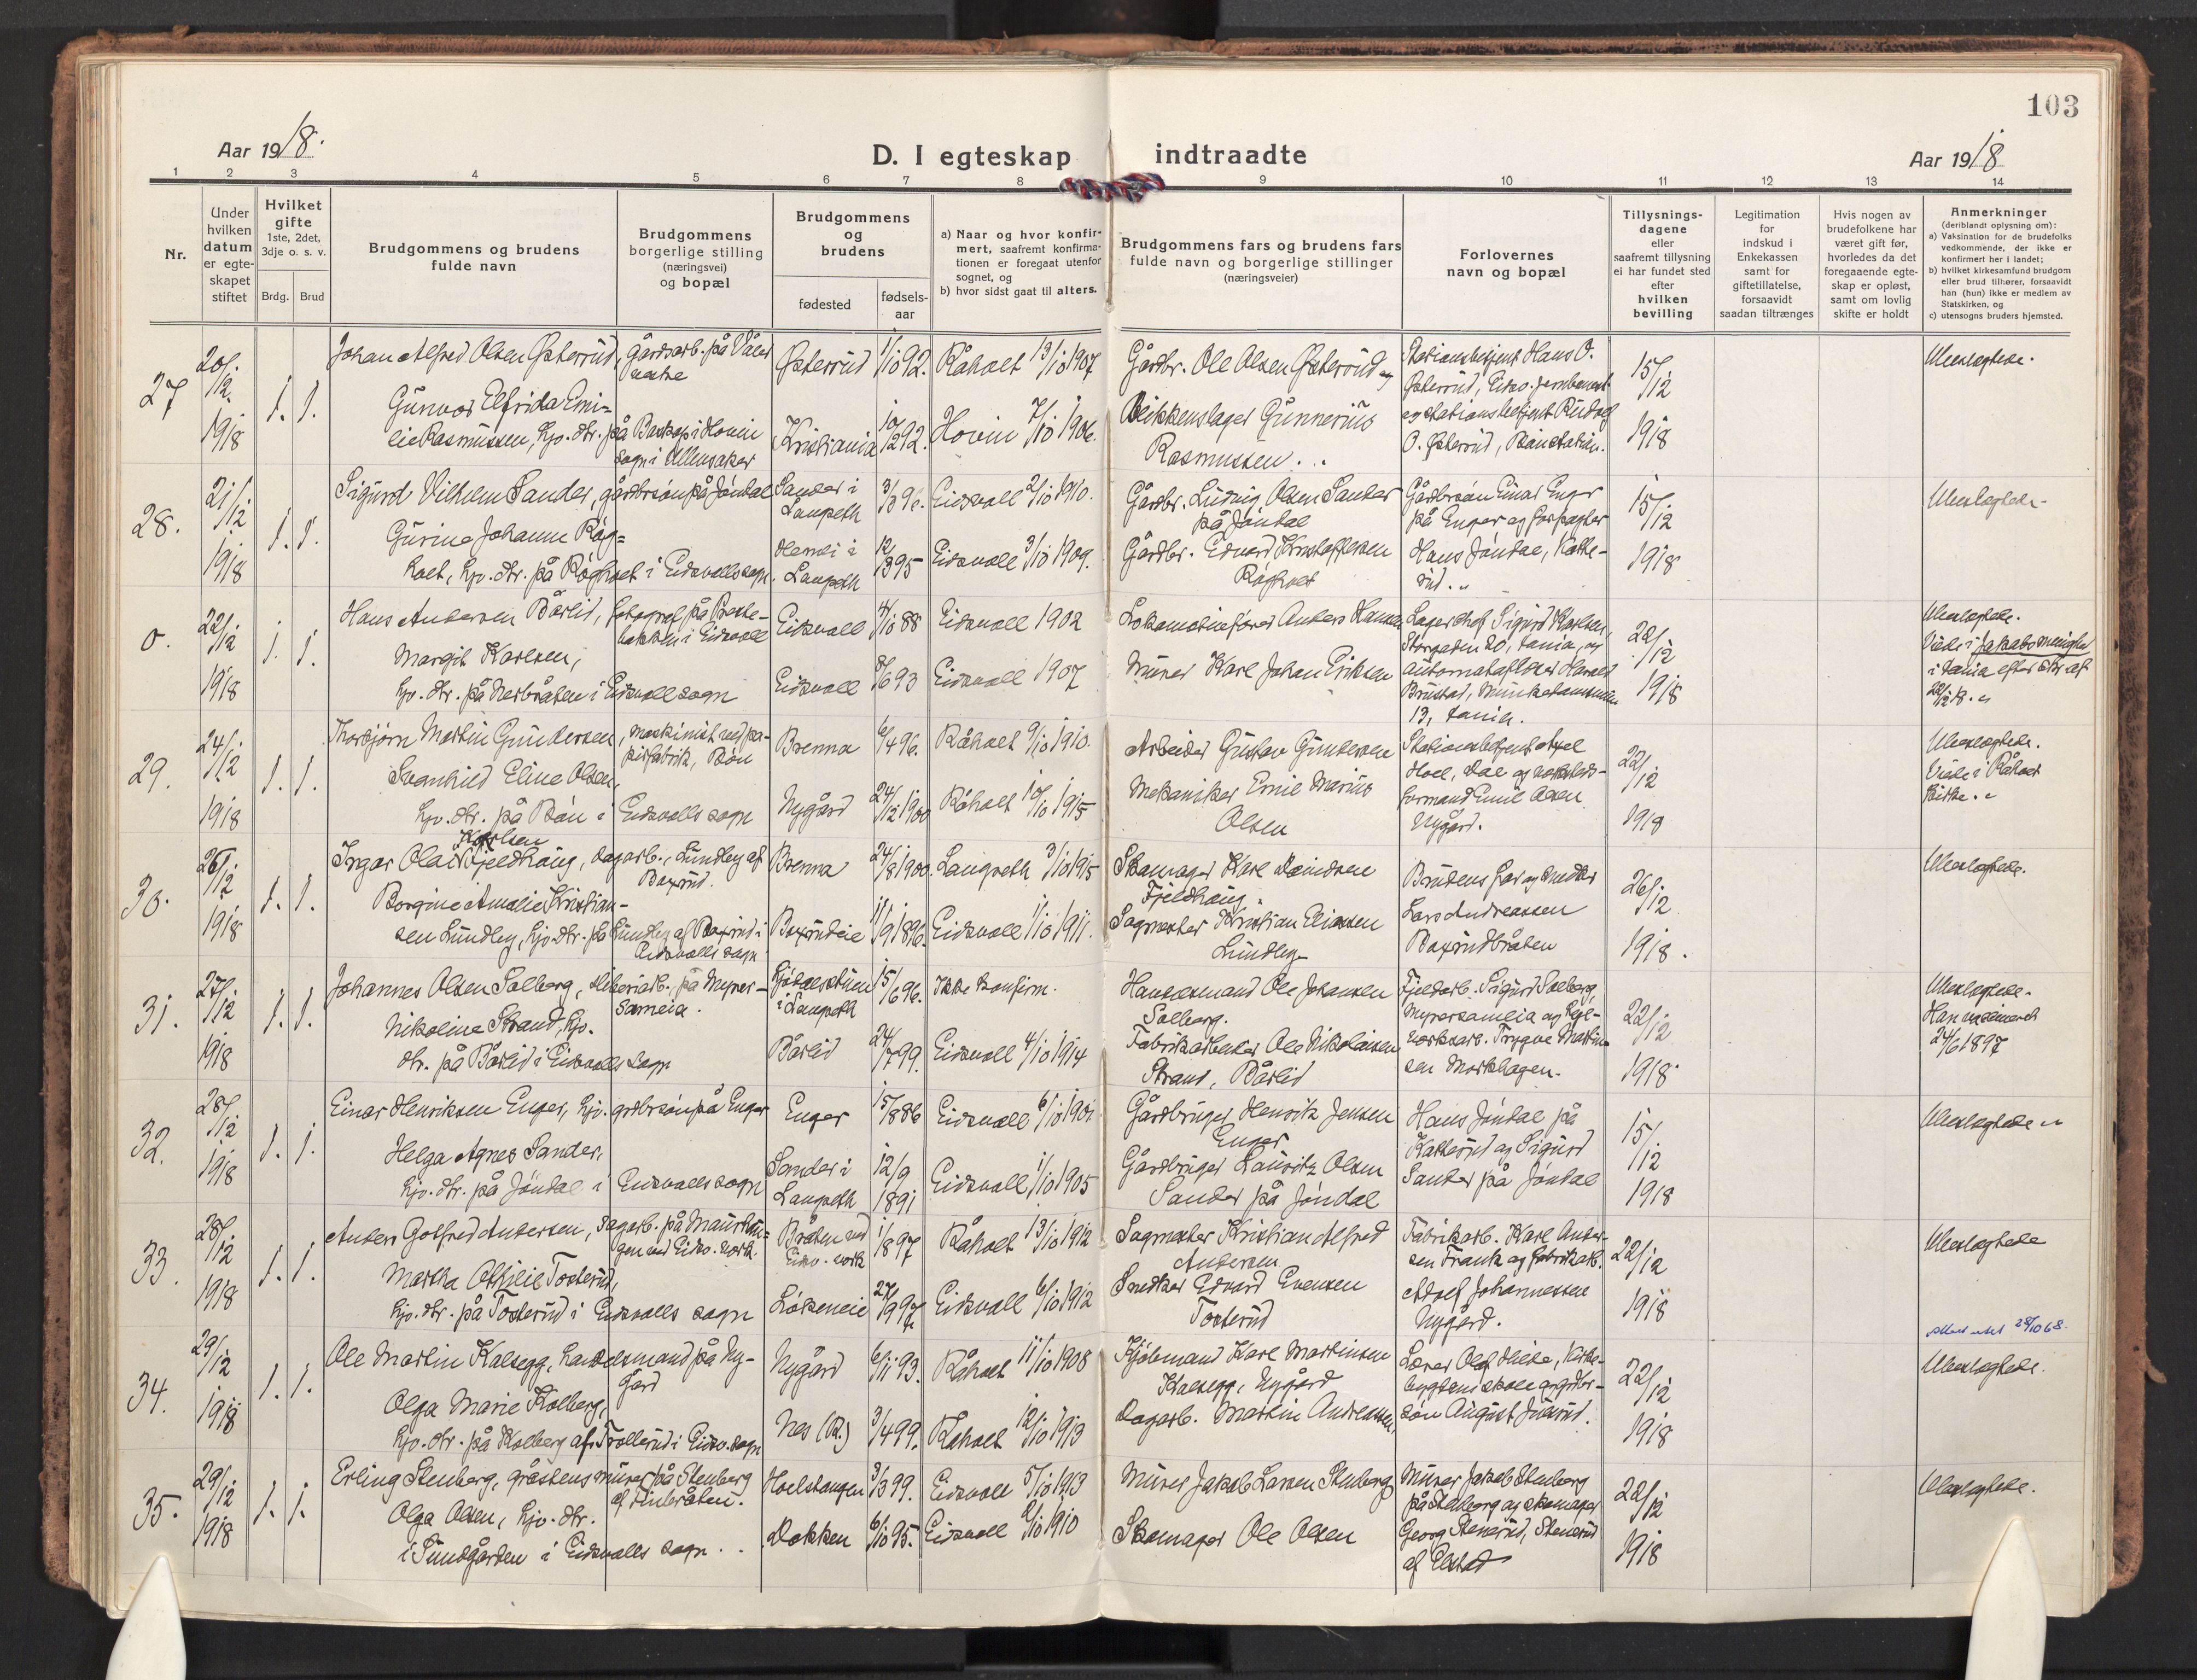 103
Aar 1918.
D. I egteskap indtraadte
Aar 1918
1 2 3 4 5 6 7 8 9 10 11 12 13 14
Nr.
Under
hvilken
datum
er egte-
skapet
stiftet
Hvilket
gifte
1ste, 2det,
3dje o. s. v.
Brdg. Brud
Brudgommens og brudens
fulde navn
Brudgommens
borgerlige stilling
(næringsvei)
og bopæl
Brudgommens
og
brudens
fødested
fødsels-
aar
a) Naar og hvor konfir-
mert, saafremt konfirma-
tionen er foregaat utenfor
sognet, og
b) hvor sidst gaat til alters.
Brudgommens fars og brudens fars
fulde navn og borgerlige stillinger
(næringsveier)
Forlovernes
navn og bopæl
Tillysnings-
dagene
eller
saafremt tillysning
ei har fundet sted
efter
hvilken
bevilling
Legitimation
for
indskud i
Enkekassen
samt for
giftetillatelse,
forsaavidt
saadan tiltrænges
Hvis nogen av
brudefolkene har
været gift før,
hvorledes da det
foregaaende egte-
skap er opløst,
samt om lovlig
skifte er holdt
Anmerkninger
(deriblandt oplysning om):
a) Vaksination for de brudefolks
vedkommende, der ikke er
konfirmert her i landet;
b) hvilket kirkesamfund brudgom
eller brud tilhører, forsaavidt
han (hun) ikke er medlem av
Statskirken, og
c) utensogns bruders hjemsted.
27
20/12 1918
1. 1.
Johan Alfred Olsen Østerrud, gårdsarb. på
Østerrud 1/10 92. Råholt 13/10 1907
Gårdbr. Ole Olsen Østerud og
Stationsbetjent Hans O.
Østerrud, Eidsv.
og stationsbetjent Rudolf
O. Østerud, Bøn station.
15/12 1918
Ubeslægtede.
Gunvor Elfrida Emi-
lie Rasmussen, hjv. dtr. på Bakop i Hovin
sogn i Ullensaker
Kristiania 10/2 92. Hovin 7/10 1906.
Blikkenslager Gunnerius
Rasmussen.
28.
21/12 1918
1. 1.
Sigurd Vilhelm Sander, gårdbrsøn på Jøndal
Sander i
Langseth
3/3 96. Eidsvoll 2/10 1910.
Gårdbr. Ludvig Olsen Sander
på Jøndal
Gårdbrsøn Einar Enger
på Enger og forpagter
Hans Jøndal, Katte-
rud.
15/12 1918
Ubeslægtede.
Gurine Johanne Røg-
holt, hjv. dtr. på Røgholt i Eidsvolls sogn.
Langseth
12/3 95 Eidsvoll 3/10 1909.
Gårdbr. Edvard Kristoffersen
Røgholt
0.
22/12 1918
1. 1.
Hans Andersen Bårlid, fotograf på Preste-
bakken i Eidsvoll
Eidsvoll 4/10 88 Eidsvoll 1902
Lokomotivfører Anders Hansen
Lagerchef Sigurd Karlsen,
Storgaten 20,
Automatafløser Harald
Brustad,
13,
22/12 1918
Ubeslægtede.
Viede i Jakobs menighet
i efter
22/12 18.
Margit Karlsen,
hjv. dtr. på Nerbråten i Eidsvoll sogn
Eidsvoll 8/6 93 Eidsvoll 1907
Murer Karl Johan Eriksen
29.
24/12 1918
1. 1.
Thorbjørn Martin Gundersen, maskinist ved pa-
pirfabrik, Bøn
Brenna 6/4 96. Råholt 9/10 1910.
Arbeider Gustav Gundersen
Stationsbetjent Axel
Hoel, Dal og verksteds-
formand Emil Olsen
Nygård.
22/12 1918
Ubeslægtede.
Viede i Råholt
Kirke.
Svanhild Eline Olsen,
hjv. dtr. på Bøn i Eidsvolls sogn
Nygård 24/12 1900 Råholt 10/10 1915
Mekaniker Emil Marius
Olsen
30.
26/12 1918
1. 1.
Karlsen
Ingar Olai Fjeldhaug, dagarb., Lundley af
Boxrud.
Brenna 24/8 1900. Langseth 3/10 1915
Skomager Karl Davidsen
Fjeldhaug.
Brudens far og snedker
Lars Andreassen
Boxrudbråten
26/12 1918.
Ubeslægtede.
Borgine Amalie Kristian-
sen Lundley, hjv. dtr. på Lundley af Boxrud i
Eidsvolls sogn
Boxrudeie 11/9 1896. Eidsvoll 1/10 1911.
Sagmester Kristian Eliassen
Lundley
31.
27/12 1918
1. 1.
Johannes Olsen Solberg, sliberiarb., på Myrer-
sameia.
i Langseth
15/6 96. Ikke konfirm.
Handelsmand Ole Johansen
Solberg.
Fjeldarb. Sigurd Solberg,
Myrersameia og
Trygve Martin-
sen Morkhagen.
22/12 1918
Ubeslægtede.
Han
24/6 1897
Nikoline Strand, hjv.
dtr. på Bårlid i Eidsvolls sogn
Bårlid 24/7 99. Eidsvoll 4/10 1914
Fabrikarbeider Ole Nikolaisen
Strand, Bårlid
32.
28/12 1918
1. 1.
Einar Henriksen Enger, hjv. grdbrsøn på Enger
Enger 15/8 86 Eidsvoll 6/10 1901
Gårdbruger Henrik Jensen
Enger
Hans Jøndal på
Katterud og Sigurd
Sander på Jøndal
15/12 1918
Ubeslægtede
Helga Agnes Sander,
hjv. dtr. på Jøndal i Eidsvolls sogn
Sander i
Langseth
12/9 1891 Eidsvoll 1/10 1905
Gårdbruger Lauritz Olsen
Sander på Jøndal
33.
28/12 1918
1. 1.
Anders Gotfred Andersen, sagarb. på
gen ved Eidsv. verk.
Bråten ved
Eidsv. verk
1/8 97 Råholt 13/10 1912
Sagmester Kristian Alfred
Andersen
Fabrikarb. Karl Ander-
sen Frank og fabrikarb.
Adolf Johannessen
Nygård.
22/12 1918
Ubeslægtede
Martha Othilie Tosterud,
hjv. dtr. på Tosterud i Eidsvolls sogn
Løkeneie 27/9 97 Eidsvoll 6/10 1912
Snedker Edvard Evensen
Tosterud
28/10 68.
34.
29/12 1918
1. 1.
Ole Martin Kalsegg, handelsmand på Ny-
gård
Nygård 6/11 93. Råholt 11/10 1908
Kjøbmand Karl Martinsen
Kalsegg, Nygård
Lærer Olaf Hilde, Kirke-
bygdens skole og grdbr-
søn August
22/12 1918
Ubeslægtede.
Olga Marie Kolberg,
hjv. dtr. på Kolberg af Trollerud i Eidsv. sogn
Nes (R.) 3/4 99. Råholt 12/10 1913
Dagarb. Martin Andreassen,
35.
29/12 1918
1. 1.
Erling Stenberg, gråstensmurer på Stenberg
Hoelstangen 3/3 99. Eidsvoll 5/10 1913
Murer Jakob Larsen Stenberg
Murer Jakob Stenberg
på Stenberg og skomager
Georg Stenerud, Stenerud
af Elstad
22/12 1918
Ubeslægtede.
Olga Olsen, hjv. dtr.
i Sundgården i Eidsvolls sogn.
Dokken 6/10 95. Eidsvoll 2/10 1910
Skomager Ole Olsen